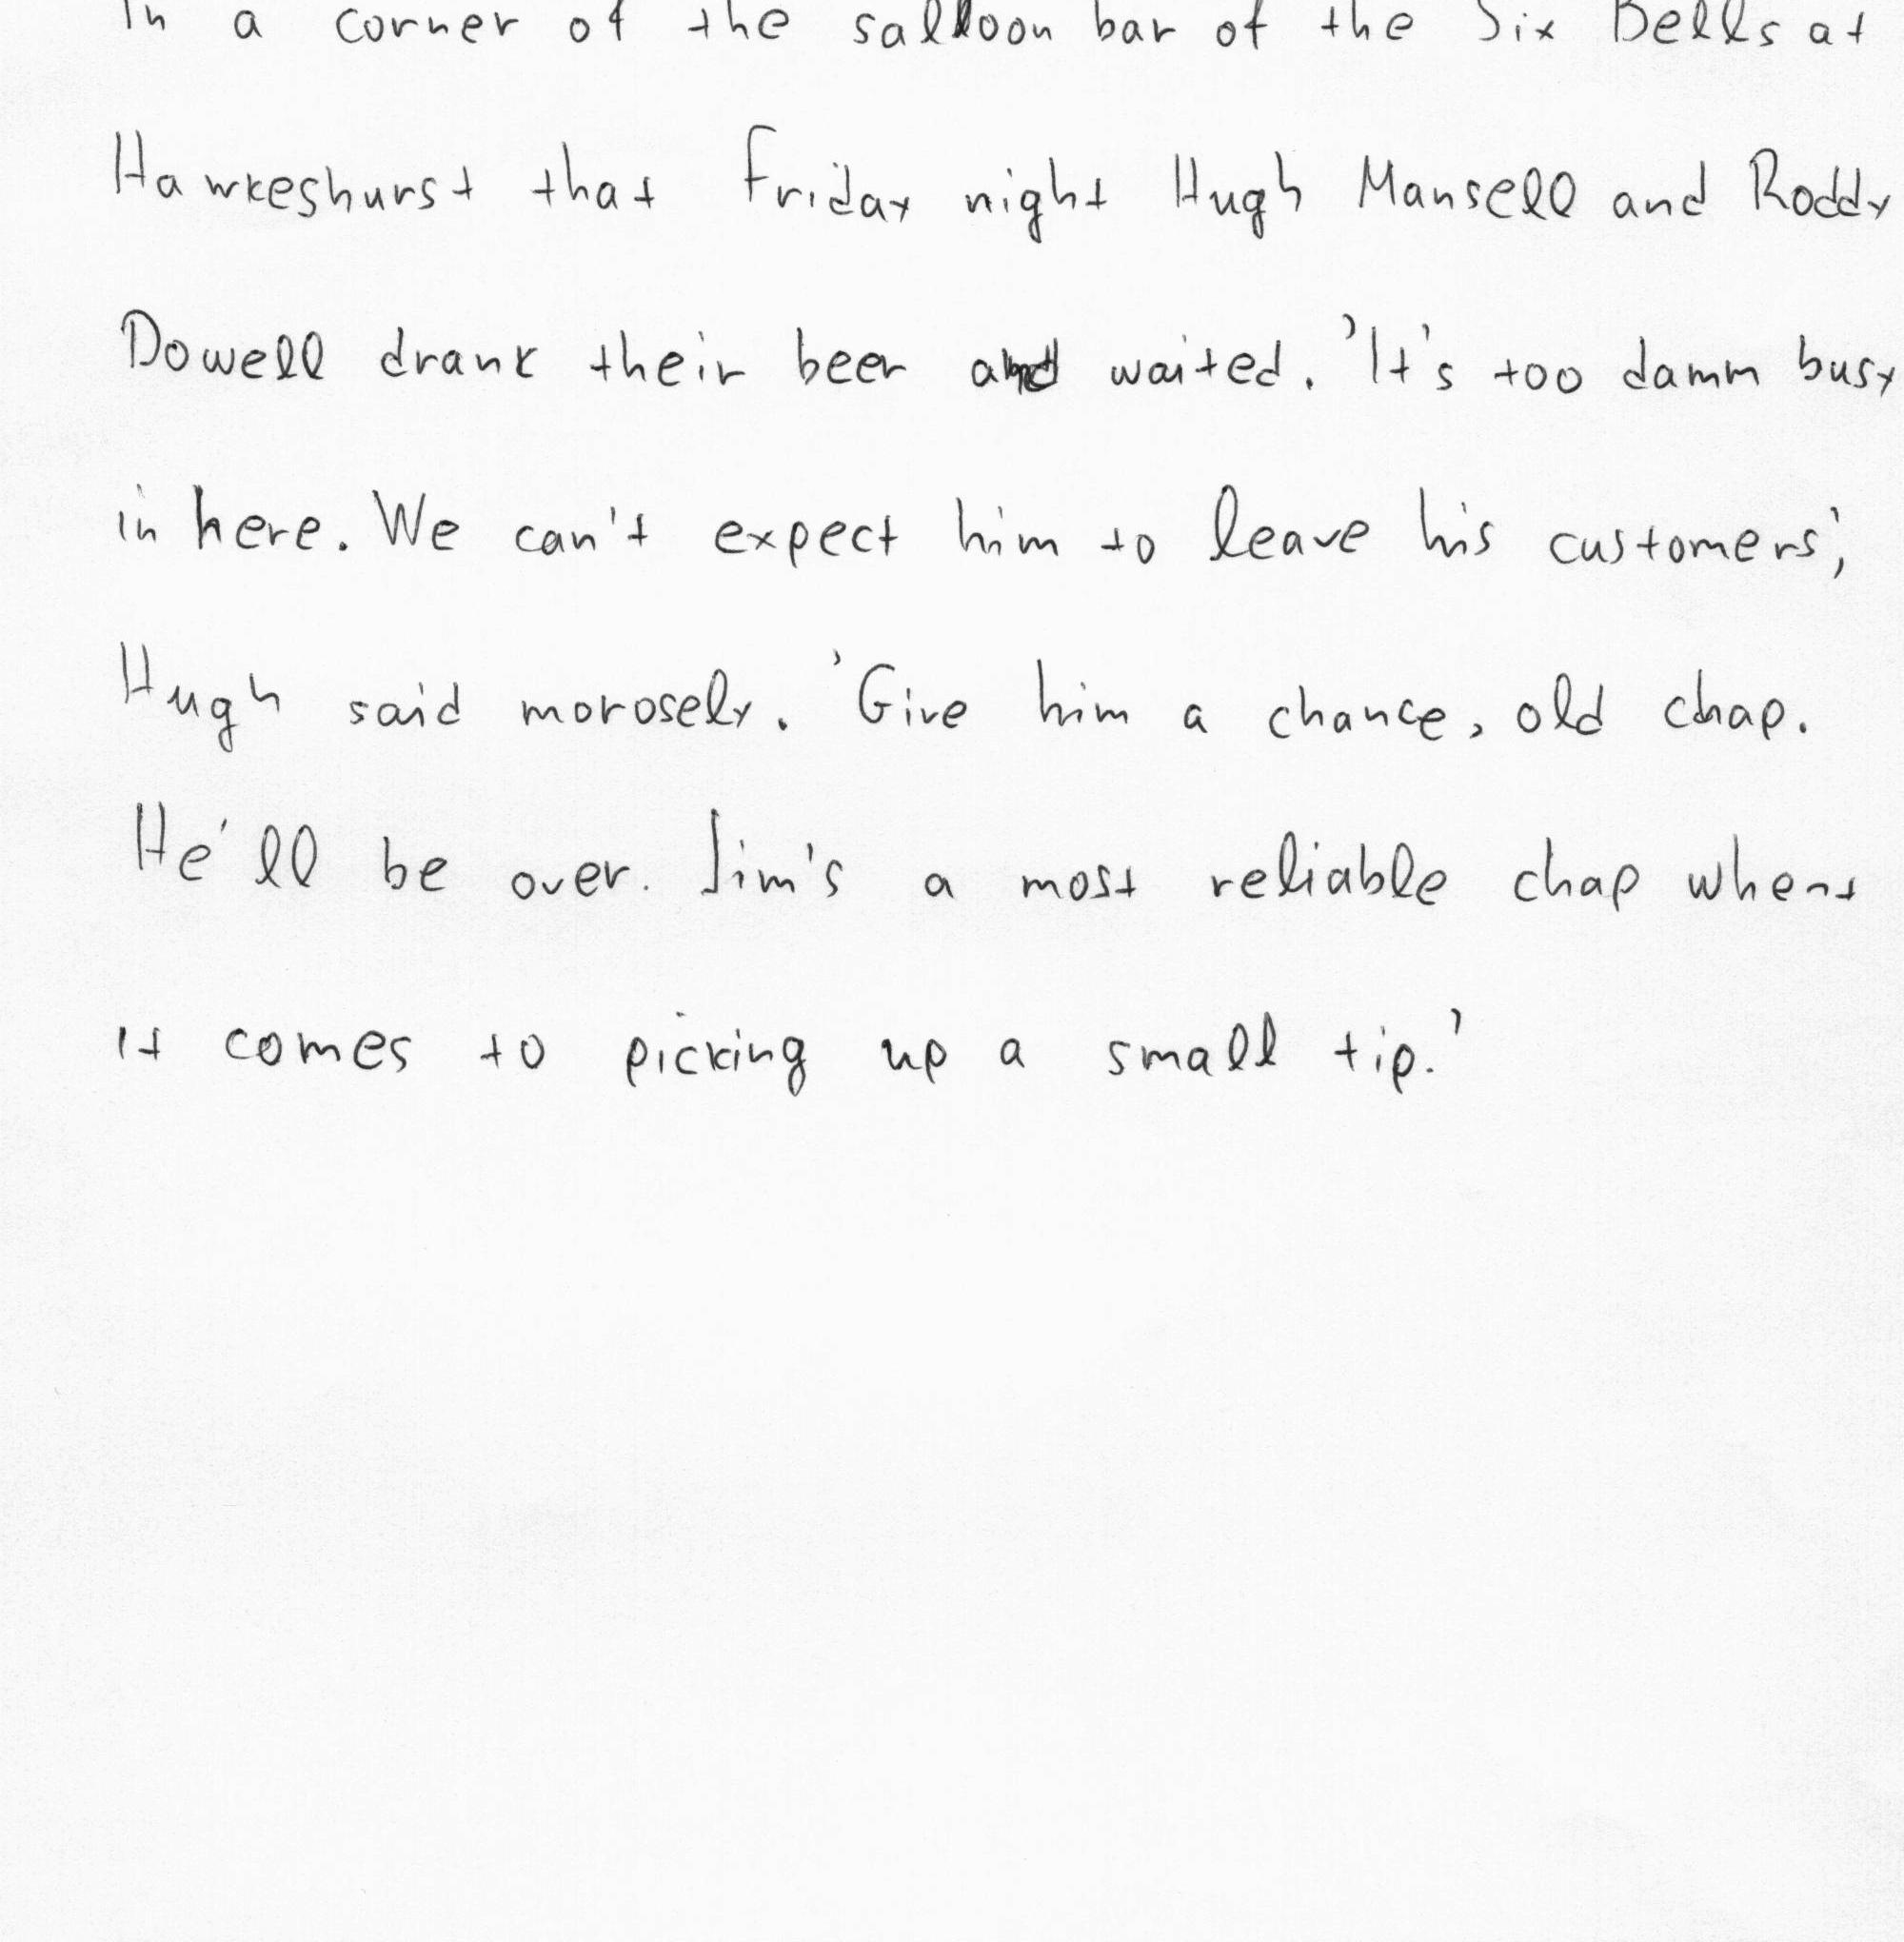 In a corner of the salloon bar of the Six Bells at
Hawkeshurst that Friday night Hugh Mansell and Roddy
Dowell drank their beer and waited. 'It's too damm busy
in here. We can't expect him to leave his customers',
Hugh said morosely. 'Give him a chance, old chap.
He'll be over. Jim's a most reliable chap when
it comes to picking up a small tip.'